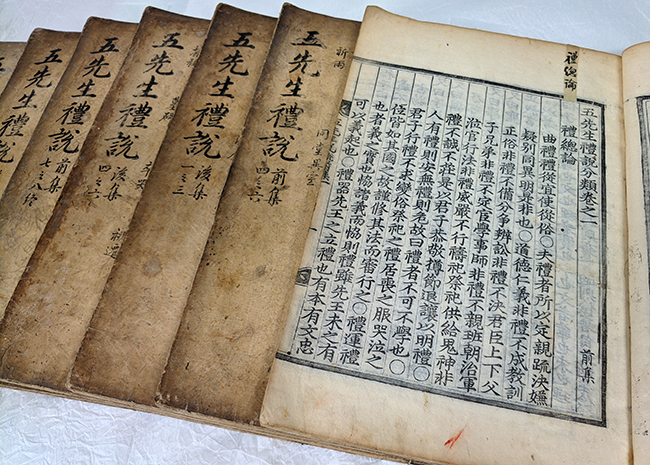 禮總論
五先生禮說分類卷之一 前集
禮總論
曲禮禮從宜使從俗〇夫禮者所以定親疏決嫌
疑別同異明是非也〇道德仁義非禮不成教訓
正俗非禮不備分爭辨訟非禮不決君臣上下父
子兄弟非禮不定宦學事師非禮不親班朝治軍
涖官行法非禮威嚴不行禱祠祭祀供給鬼神非
禮不誠不莊是以君子恭敬撙節退讓以明禮〇
人有禮則安無禮則危故曰禮者不可不學也〇
君子行禮不求變俗祭祀之禮居喪之服哭泣之
位皆如其國之故謹修其法而審行之〇禮運禮
也者義之實也協諸義而協則禮雖先王未之有
可以義起也〇禮器先王之立禮也有本有文忠
五先生禮說 前集
四之六
五先生禮說 後集
一之三
五先生禮說 後集
四之六
五先生禮說 前集
七之八終